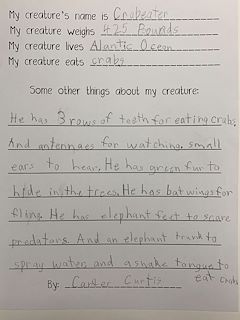 My creature's name is Crabeater
My creature weighs 425 Pounds
My creature lives Alantic Ocean
My creature eats crabs
Some other things about my creature:
He has 3 rows of teeth for eating crabs.
And antennaes for watching, small
ears to hear. He has green fur to
hide in the trees. He has bat wings for
fling. He has elephant feet to scare
predators. And an elephant trunk to
spray water, and a snake tongue to
eat crabs
By: Carter Curtis